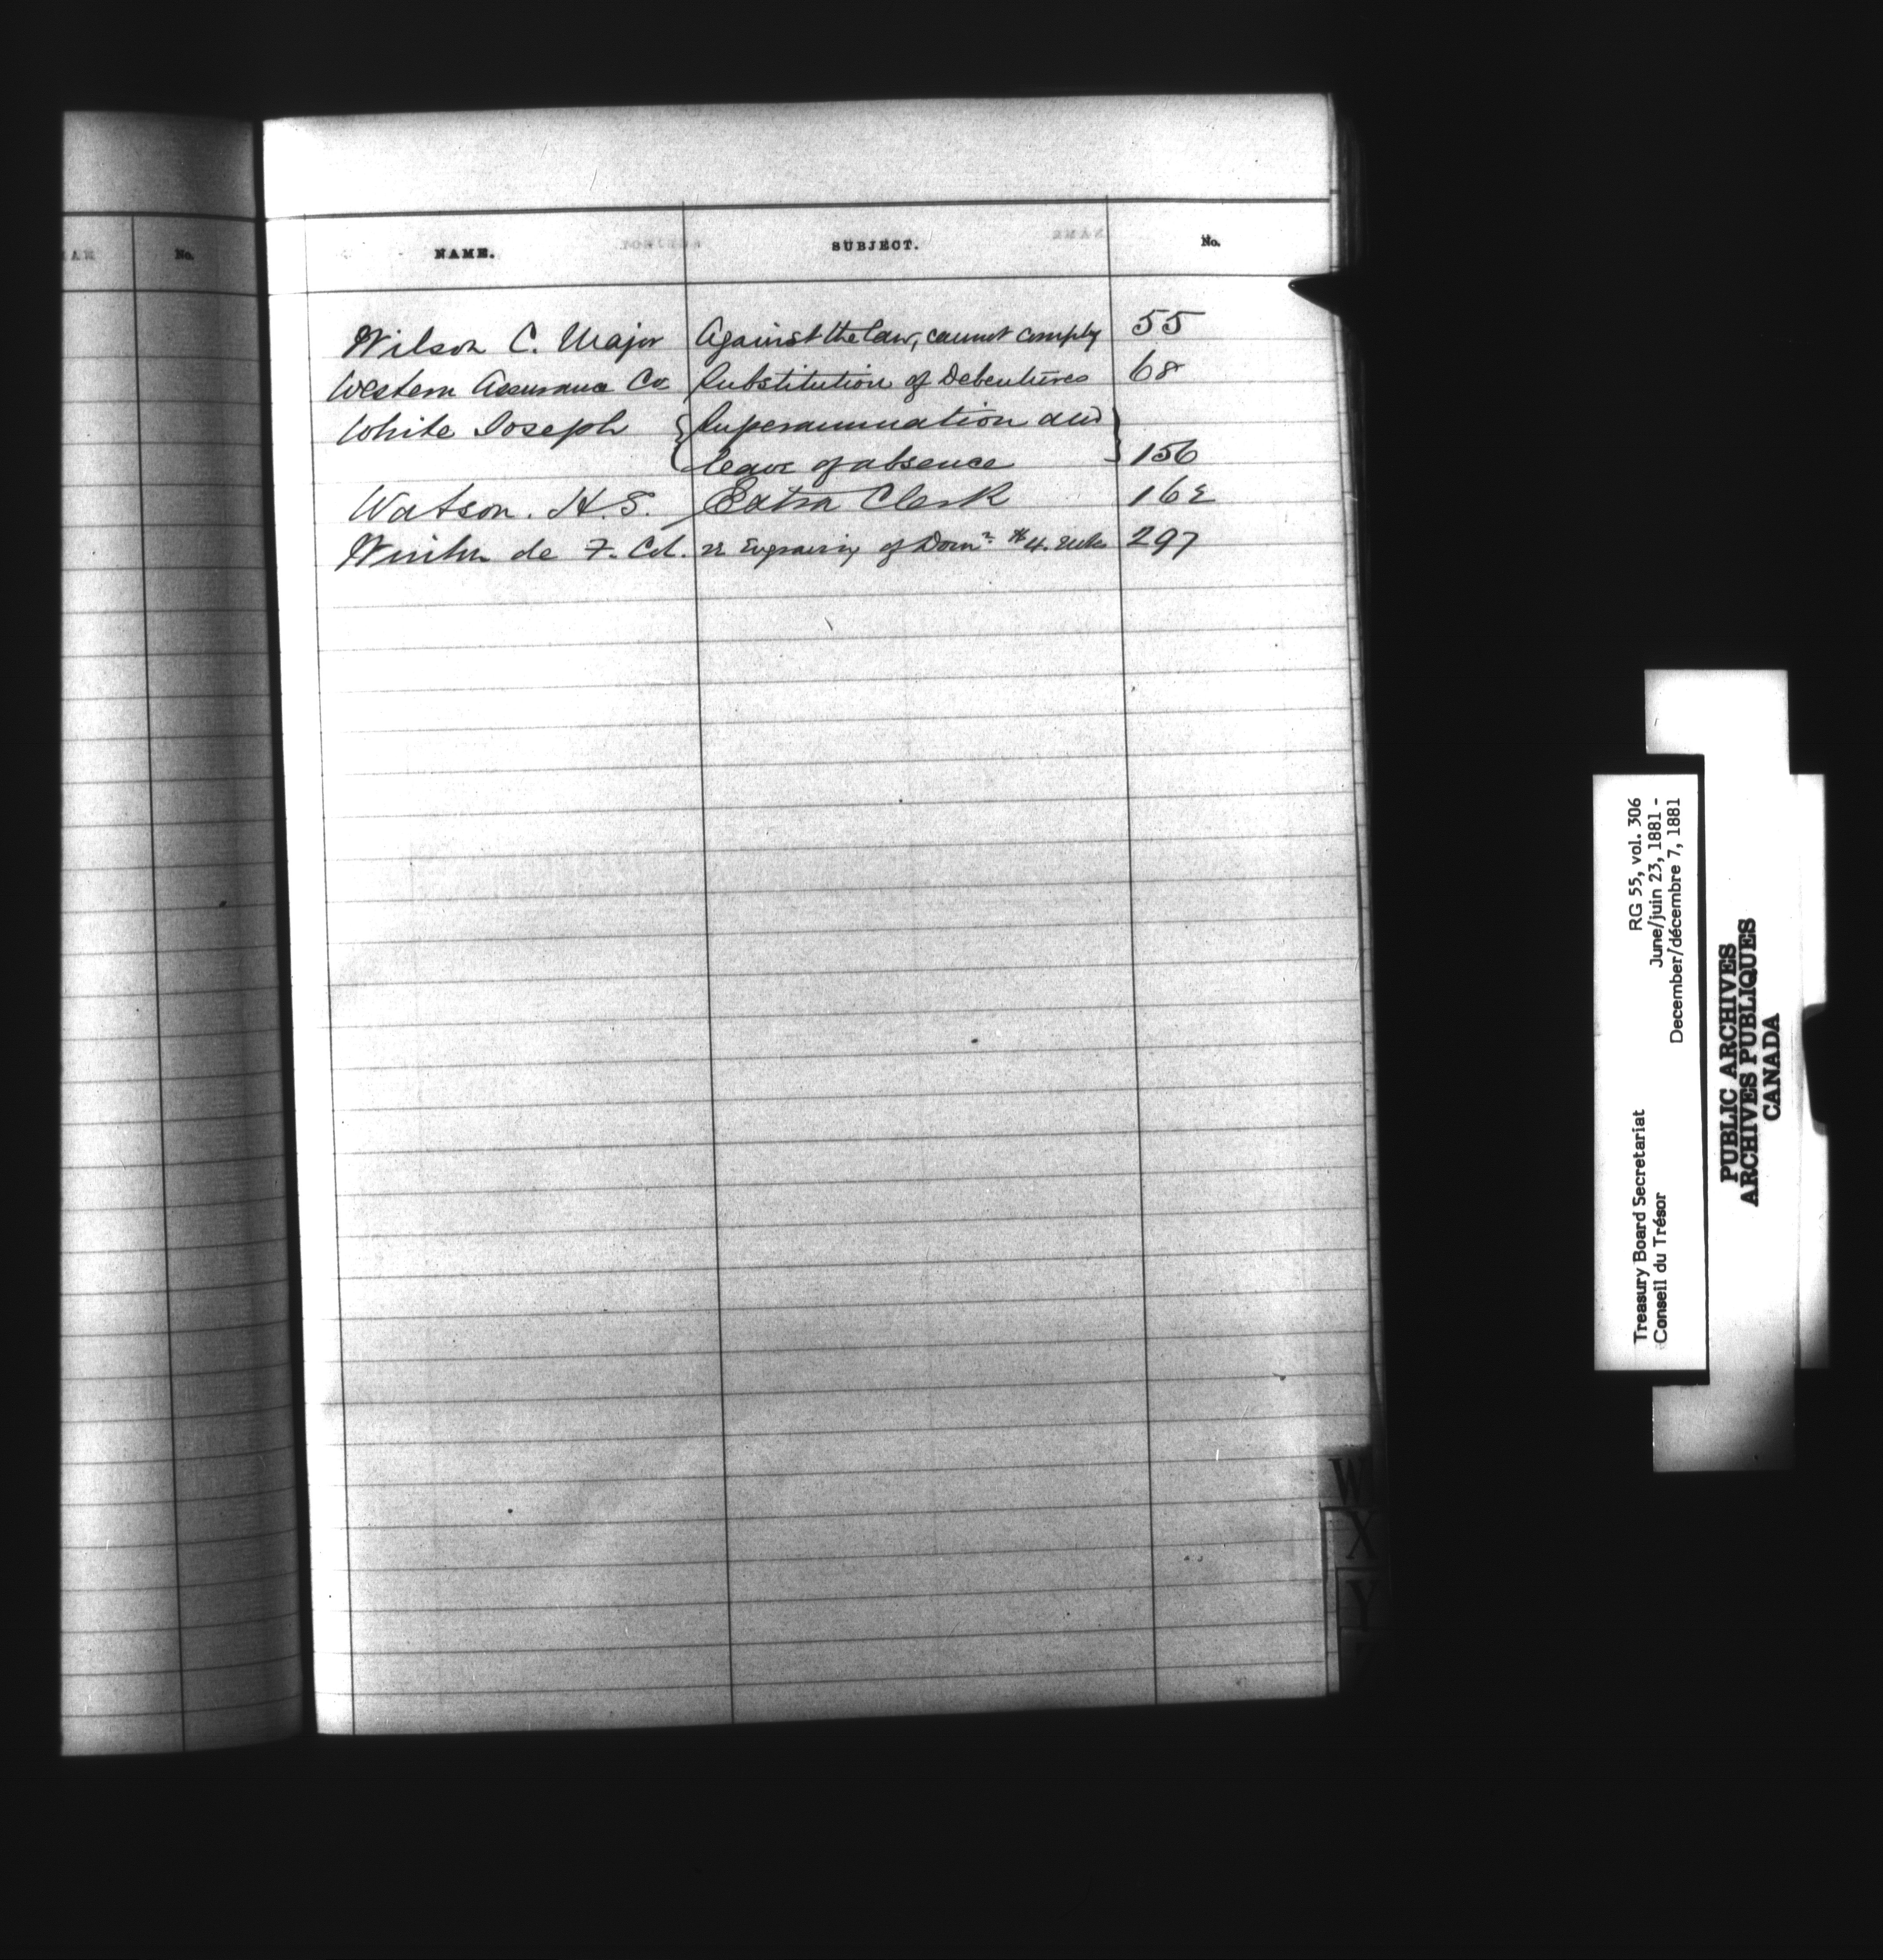 No.
NAME. SUBJECT. No.
Wilson C. Major Against the law, cannot comply 55
Western Assurance Co Substitution of Debentures 68
White Joseph Superannuation and
leave of absence 156
Watson. H. S. Extra Clerk 162
de F. Col. re Engraving of Domn. $4. 297
W
X
Y
RG 55, vol. 306
June/juin 23, 1881 -
December/décembre 7, 1881
Treasury Board Secretariat
Conseil du Trésor
PUBLIC ARCHIVES
ARCHIVES PUBLIQUES
CANADA